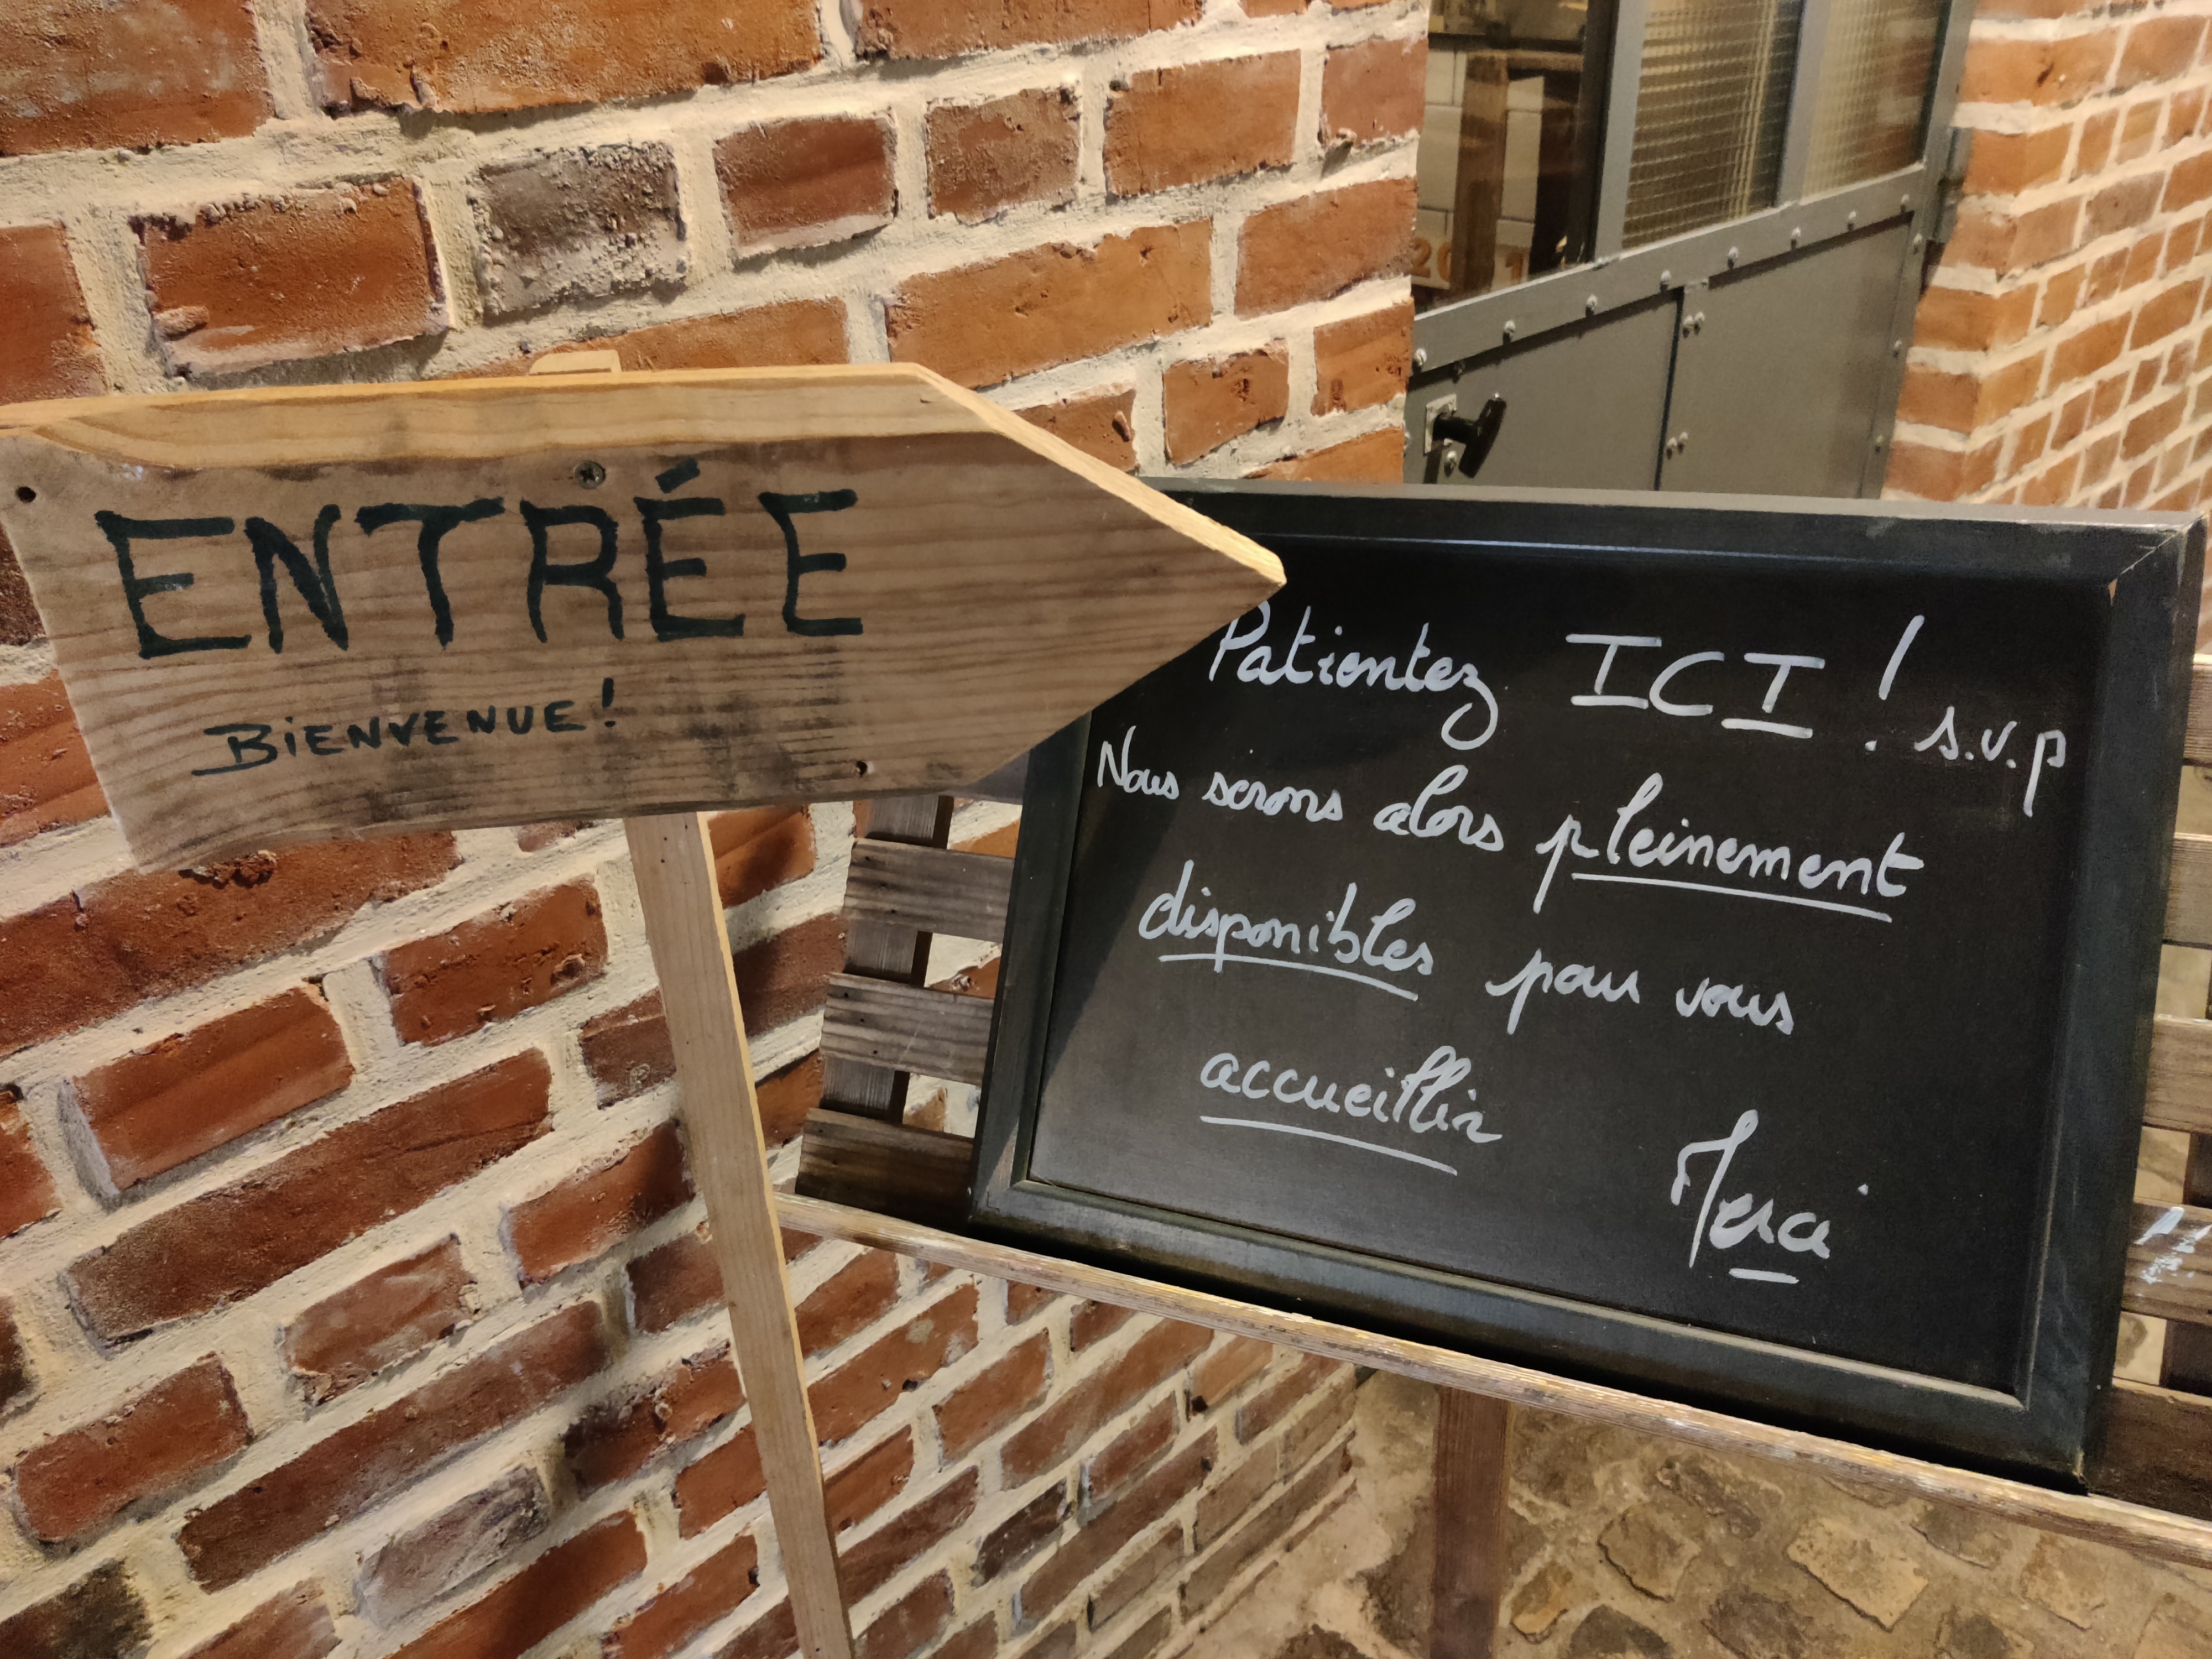 ENTRÉE
BIENVENUE!
Patientez ICI ! s.v.p
Nous serons alors pleinement
disponibles pour vous
accueillir
Merci